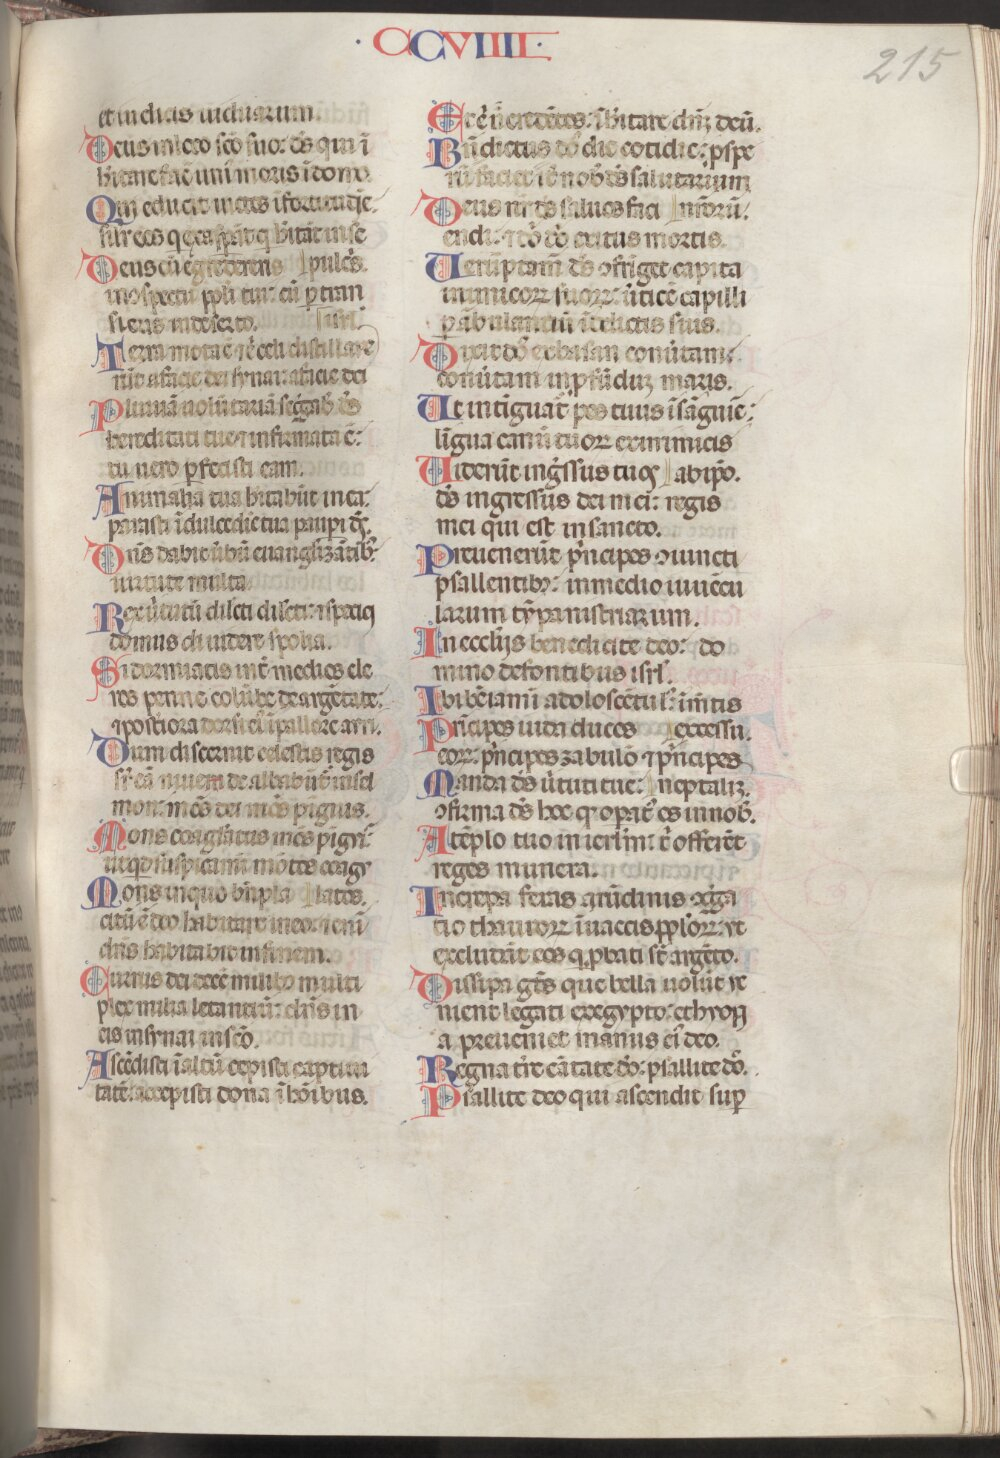 ·CCVIIII·
215
et iudicis uiduarum.
Deus in loco sc̄o suo: ds̄ qui ī
h̄itare fac̄ uni᷒ moris ī domo.
Qui educit uīctos ī fortitudīe:
sil'r eos q̄ exasꝑāt q̄ h̄itāt in se
Deus cū egredereris pulcrīs.
in ꝯspectu ppl'i tui: cū ꝑtran
sieris in deserto. isrl'.
Terra mota ē ⁊ cēli distillaue
rūt a facie dei synai: a facie dei
Pluuiā uolūtariā seggab' ds̄
hereditati tue ⁊ infirmata ē:
tu uero ꝑfecisti eam.
Animalia tua h̄itabūt in ea:
parasti ī dulcedīe tua pauꝑi ds̄.
Dn̄s dabit ūbū euangl'izātib':
uirtute multa
Rex ūtutū dilcti dilcti: ⁊ speciei
domus diuidere spolia.
Si dormiatis int̄ medios cle
ros penne colūbe deargētate:
⁊ posteriora dorsi ei᷒ ī pallore auri.
Dum discernit celestis regis
sr̄ eā niuem dealbabūt̄ in sel
mon: mōs dei mōs pīguis.
Mons coagl'atus mōs pīgu᷒
ut qd̄ suspicamī mōtes coagl'
Mons in quo bn̄pla latos.
citū ē deo habitare in eo: eteni᷒
dn̄s habitabit in finem.
Currus dei decē milib᷒ multi
plex milia letantiū: dn̄s in
eis in synai in sc̄o.
Ascēdisti ī altū cepisti captiui
tatē: accepisti dona ī hoībus.
Etēi᷒ n̄ credētes: īh̄itare dn̄ꝫ deū.
Bn̄dictus dn̄s die cotidie: pspe
rū faciet it̄ nob' ds̄ salutarium
Deus nr̄ ds̄ saluos faci nr̄orū.
endi: ⁊ dn̄i dn̄i exitus mortis.
Uerūptam̄ ds̄ ꝯfriget capita
inimicoꝝ suoꝝ: ūticē capilli
ꝑābulantiū ī delictis suis.
Dixit dn̄s ex basan conūtam:
conūtam in ꝓfūduꝫ maris.
Ut intīguat᷒ pes tuus ī sāguīe:
līgua canū tuoꝝ ex inimicis
Uiderūt ingrssus tuos ab ipo.
ds̄ ingressus dei mei: regis
mei qui est in sancto.
Preuenerūt prīcipes ꝯiuncti
psallentib᷒: in medio iuuēcu
larum tympanistriarum.
In ecclīis benedicite deo: do
mino de fontibus isrl'.
Ibi beniamī adoloscētul᷒: ī mētis
Prīcipes iuda duces excessu.
eoꝝ: prīcipes zabulō ⁊ prīcipes
Manda ds̄ ūtuti tue: neptaliꝫ.
ꝯfirma ds̄ hoc qd̄ opat᷒ es in nob'.
A tēplo tuo in ierl'm: t' offerēt
reges munera.
Increpa feras arūdinis ꝯgga
tio thauroꝝ ī uaccis ppl'oꝝ: ut
excludāt eos q̄ ꝓbati st̄ argēto.
Dissipa gēs que bella uolūt ue
nient legati ex egypto: ethyopi
a preueniet manus ei᷒ deo.
Regna t're cātate deo: psallite dn̄o.
Psallite deo qui ascendit suꝑ